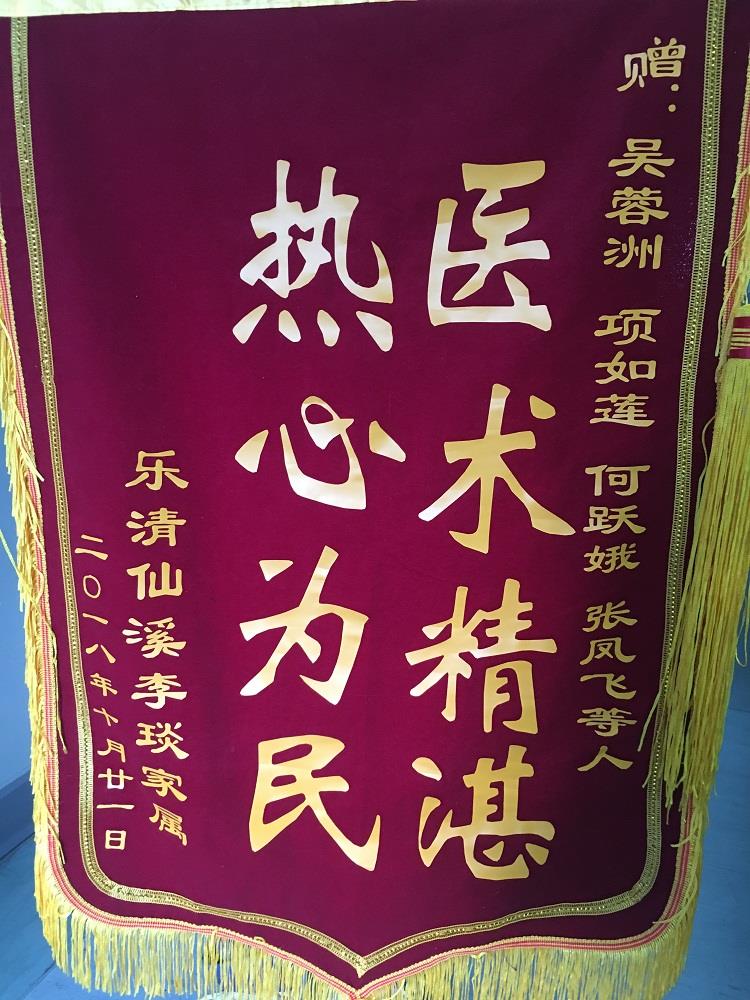 赠：吴蓉洲 项如莲 何跃娥 张凤飞等人
医术精湛
热心为民
乐清仙溪李琰家属
二〇一八年十月廿一日